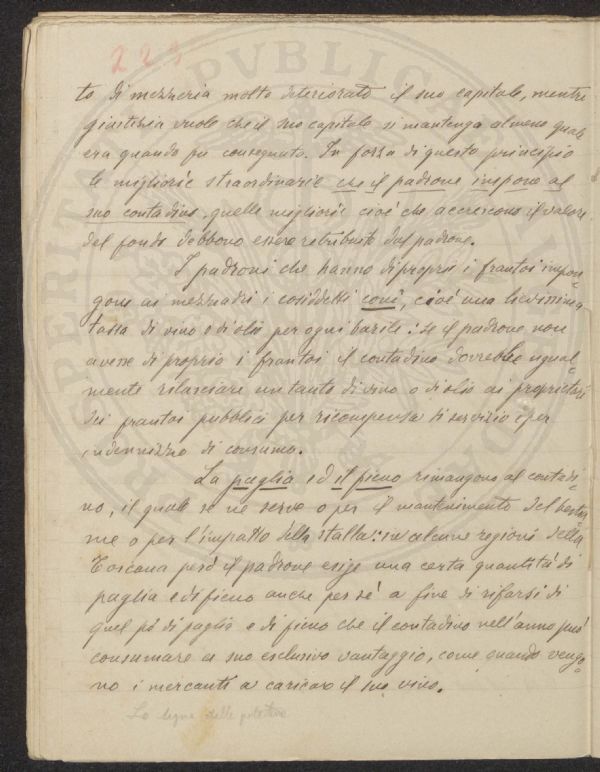 223
to di mezzeria molto deteriorato il suo capitale, mentre
giustizia vuole che il suo capitale si mantenga almeno quale
era quando fu consegnato. In forza di questo principio
le migliorie straordinarie che il padrone impone al
suo contadino, quelle migliorie cioè che accrescono il valore
del fondo debbono essere retribuite dal padrone.
I padroni che hanno di proprio i frantoi impon-
gono ai mezzadri i cosiddetti coni, cioè una lievissima
tassa di vino o di olio per ogni barile: se il padrone non
avesse di proprio i frantoi il contadino dovrebbe ugual-
mente rilasciare un tanto di vino o di olio ai proprietari
dei frantoi pubblici per ricompensa di servizio e per
indennizzo di consumo.
La paglia ed il fieno rimangono al contadi-
no, il quale se ne serve o per il mantenimento del bestia
me o per l'impatto della stalla: in alcune regioni della
Toscana però il padrone esige una certa quantità di
paglia e di fieno anche per sé a fine di rifarsi di
quel pò di paglia e di fieno che il contadino nell'anno può
consumare a suo esclusivo vantaggio, come quando vengo-
no i mercanti a caricare il suo vino.
La legna delle potature
PVBLICA